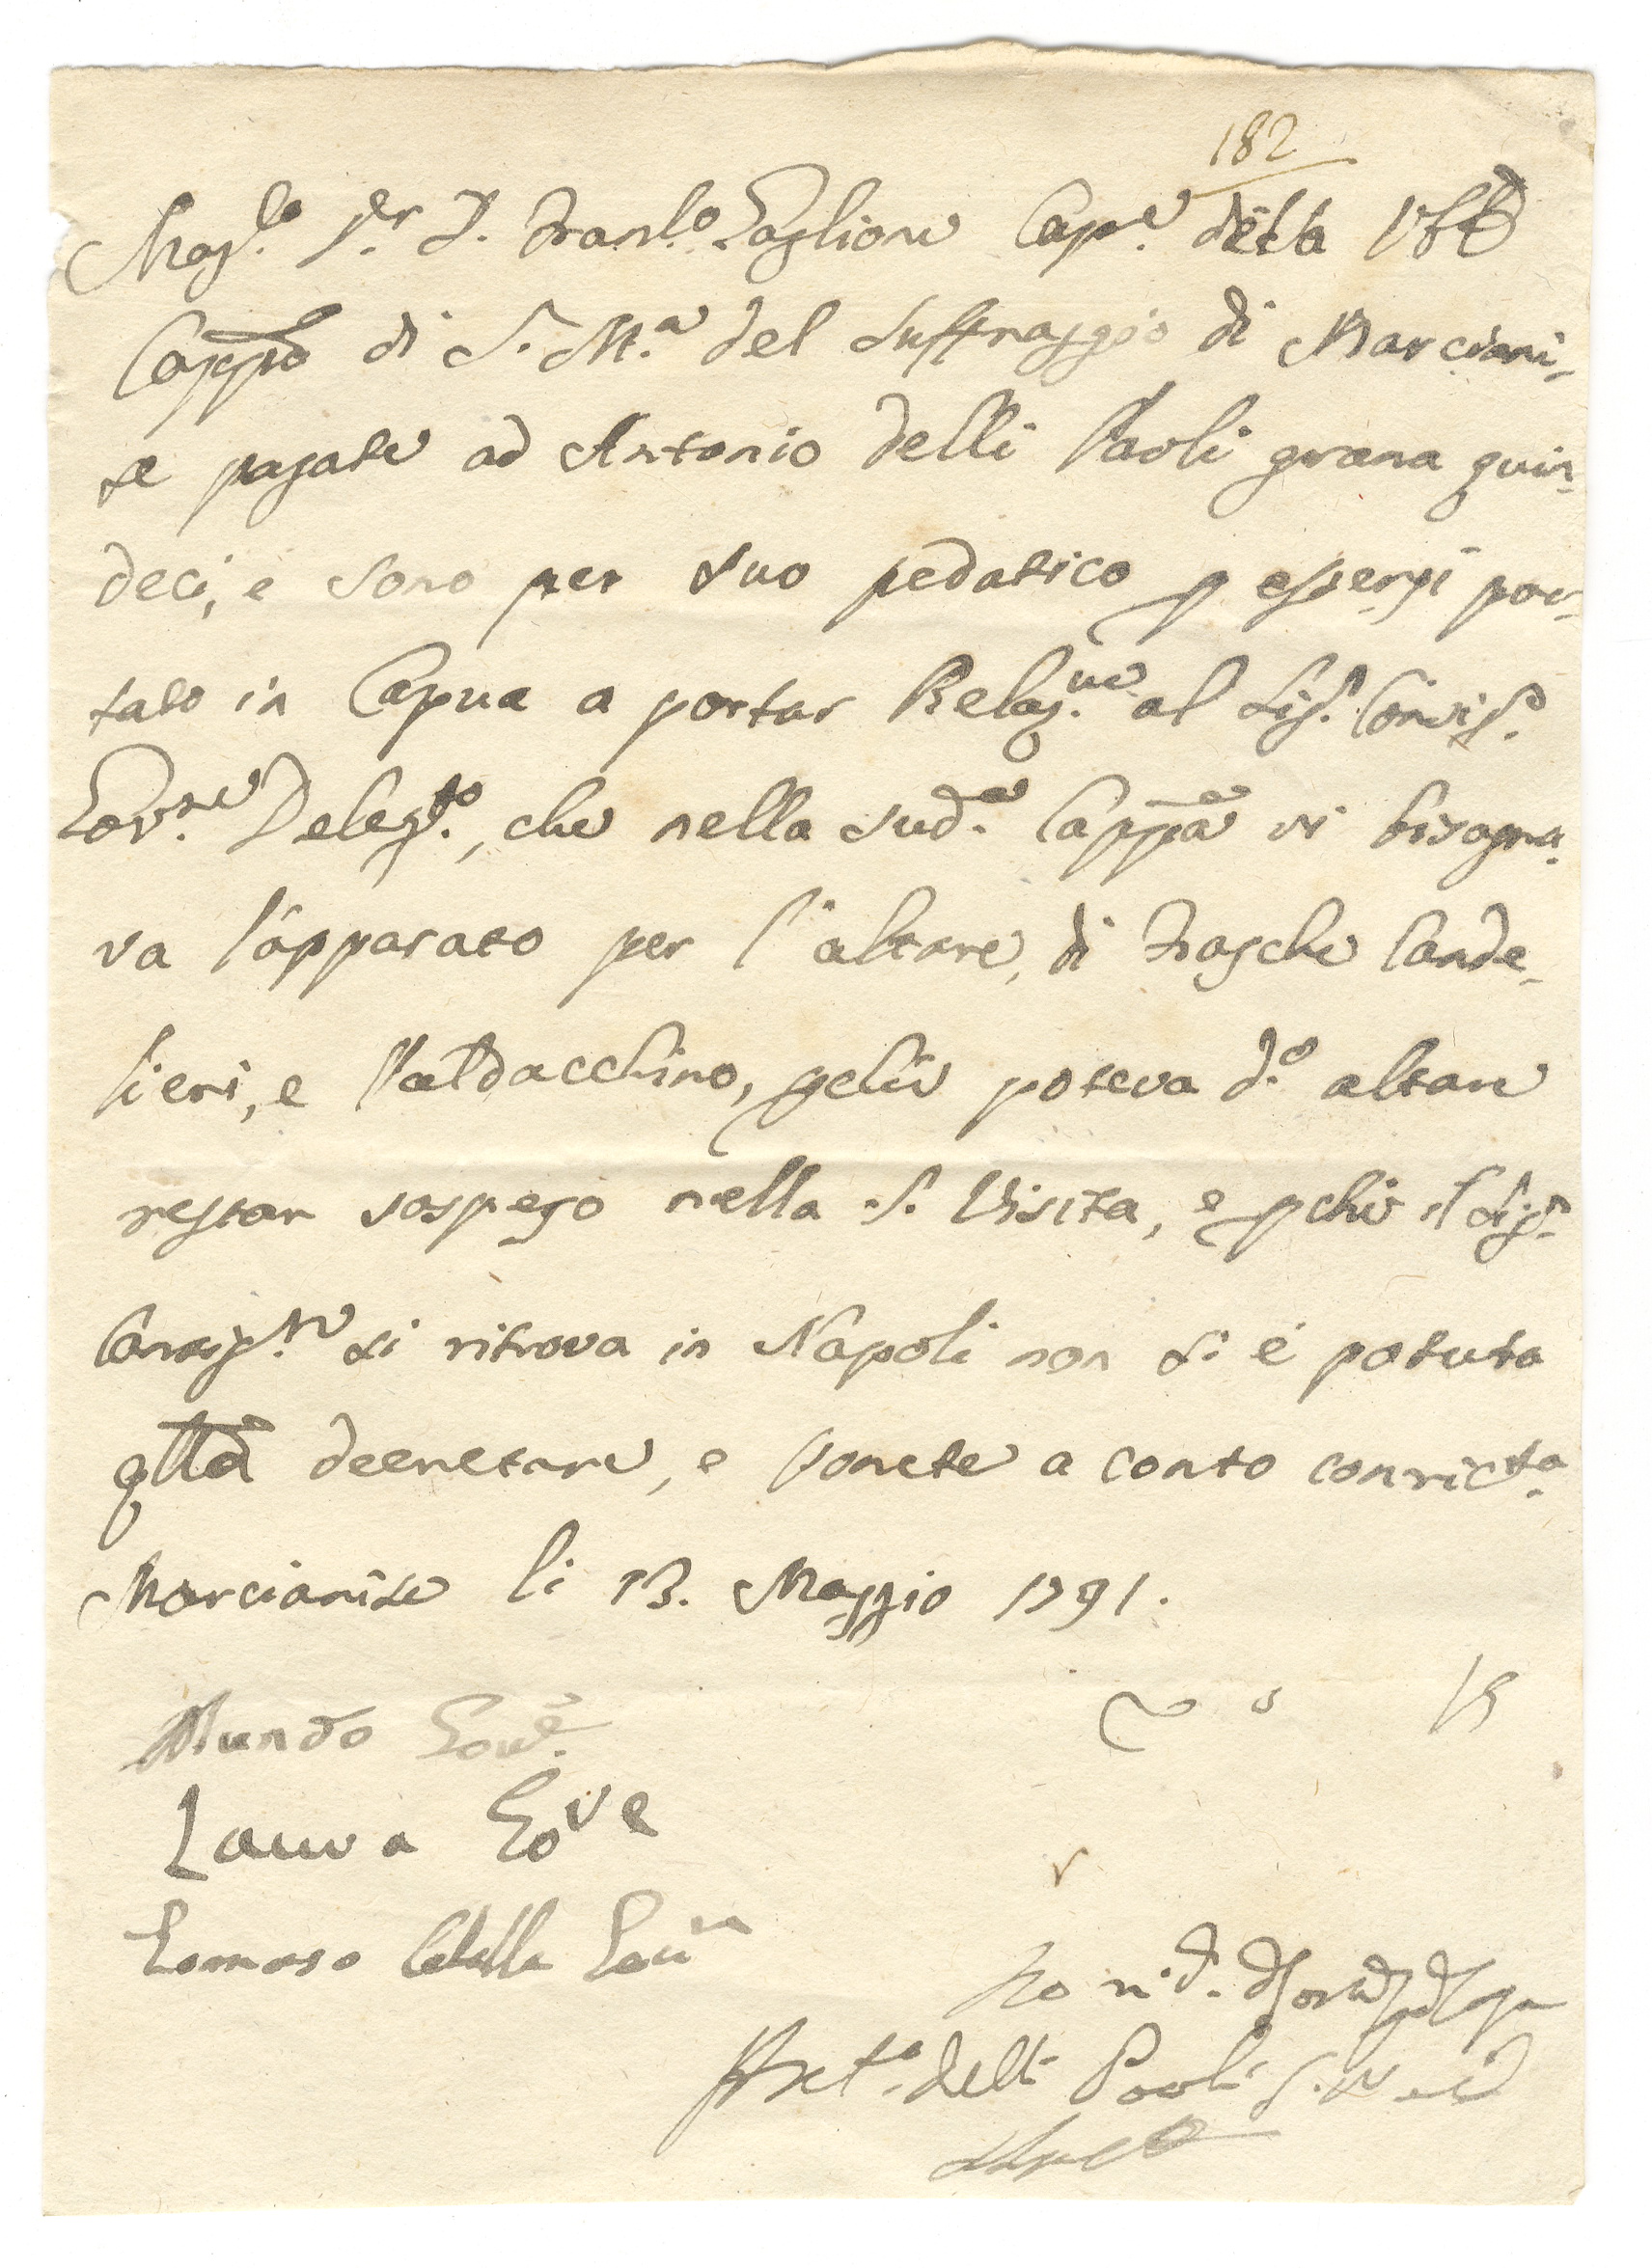 182
Mag.co S.r D. Fran.co Paglione Cap.e della
Capp.a di S. M.a del Suffraggio di Marciani-
se pagate ad Antonio delli Paoli grana quin-
deci, e sono per suo pedatico p essersi por-
tato in Capua a portar Relaz.ne al Sig.r
Gov.re Deleg.to, che nella sud.a Capp.a vi bisogna-
va l'apparato per l'altare, di frasche Cande-
lieri, e Baldacchino, pche poteva d.o altare
restar sospeso nella S. Visita, e pche il Sig.r
si ritrova in Napoli non si è potuta
qlla decretare, e ponete a conto
Marcianise li 13. Maggio 1791.
Mundo Gov.e
15
Laura Gov.e
Tomaso
delli Paoli